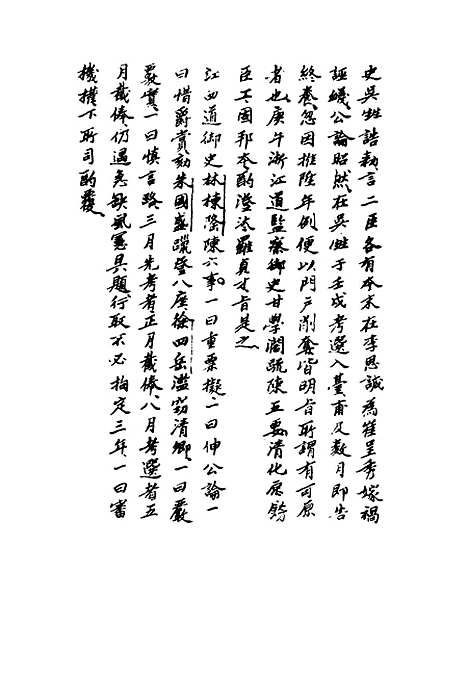 史吳甡誥勅言二臣各有本末在李思誠為崔呈秀嫁禍
誣衊公論昭然在吳甡于壬戌考選入臺甫及數月即告
終養忽因推陞年例便以門戶削奪皆明旨所謂有可原
者也庚午浙江道監察御史甘學闊疏陳五要清化原飭
臣工固邦本酌澄汰羅貞才旨是之
江西道御史林棟隆陳六事一曰重票擬一曰伸公論一
曰惜爵賞劾朱國盛躐登八座徐四岳濫竊清卿一曰嚴
覈實一曰慎言路三月先考者正月截俸八月考選者五
月截俸仍遇急缺風憲具題行取不必拘定三年一曰審
機權下所司酌覆